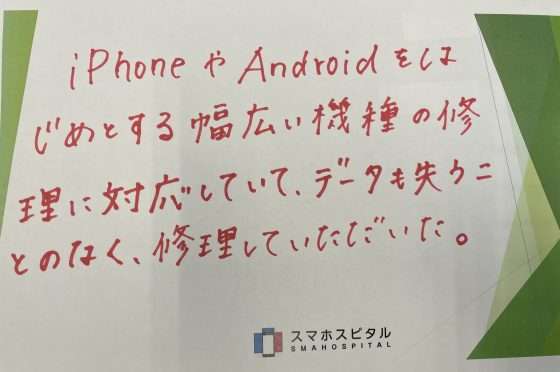 iPhoneやAndroidをは
じめとする幅広い機種の修
理に対応していて、データも失うこ
とのなく、修理していただいた。
スマホスピタル
SMAHOSPITAL